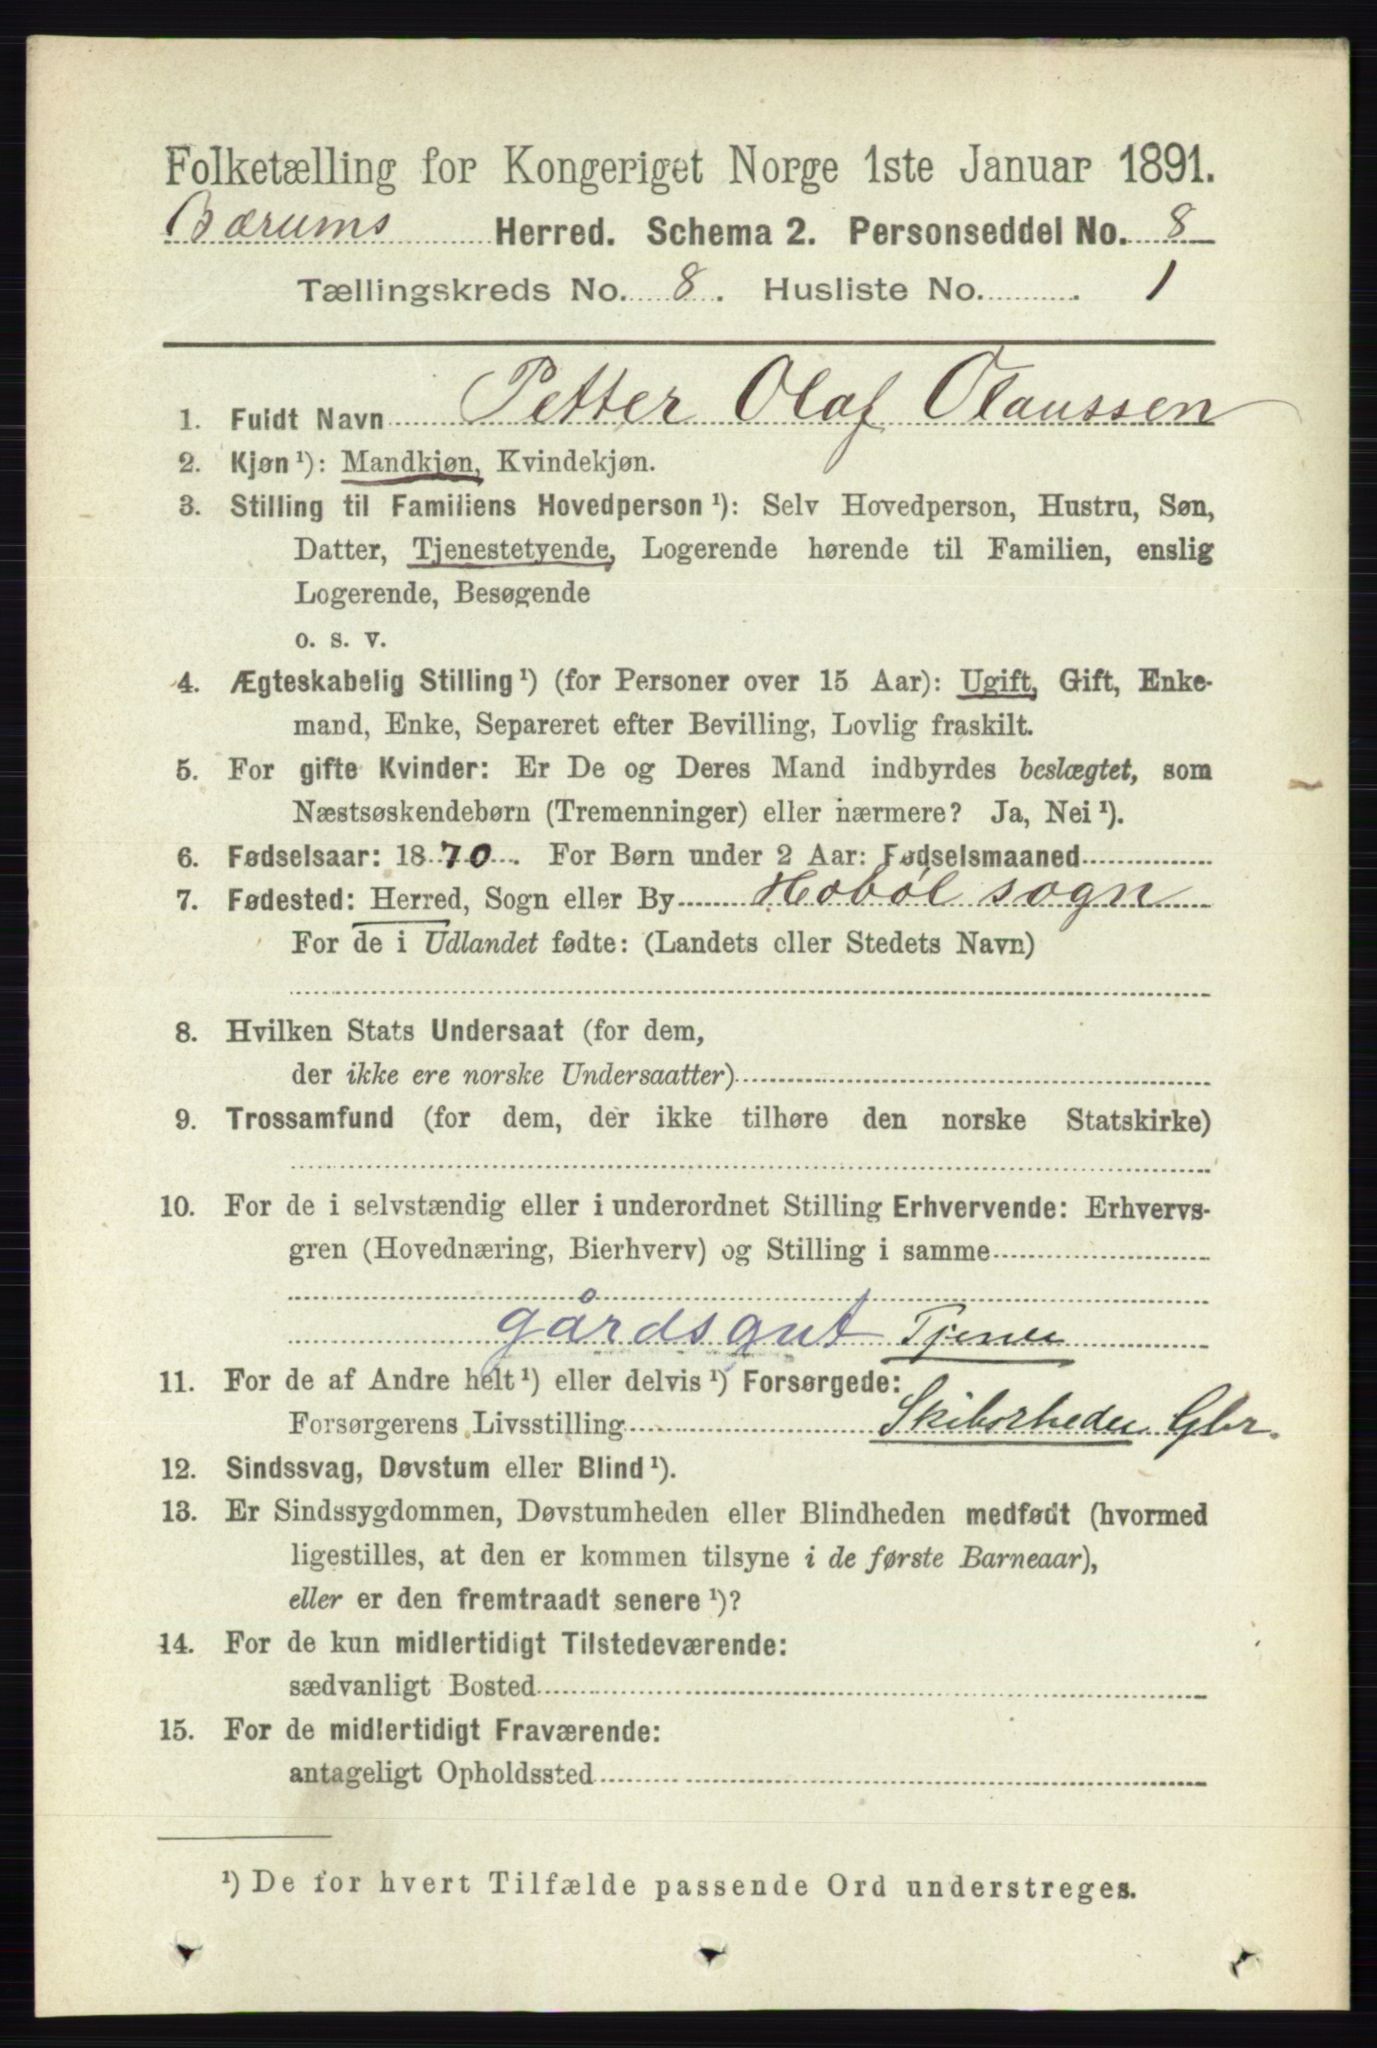 Folketælling for Kongeriget Norge 1ste Januar 1891.
Bærums Herred. Schema 2. Personseddel No. 8
Tællingskreds No. 8. Husliste No. 1
1. Fuldt Navn Petter Olaf Olaussen
2. Kjøn¹): Mandkjøn, Kvindekjøn.
3. Stilling til Familiens Hovedperson¹): Selv Hovedperson, Hustru, Søn,
Datter, Tjenestetyende, Logerende hørende til Familien, enslig
Logerende, Besøgende
o. s. v.
4. Ægteskabelig Stilling¹) (for Personer over 15 Aar): Ugift, Gift, Enke-
mand, Enke, Separeret efter Bevilling, Lovlig fraskilt.
5. For gifte Kvinder: Er De og Deres Mand indbyrdes beslægtet, som
Næstsøskendebørn (Tremenninger) eller nærmere? Ja, Nei¹).
6. Fødselsaar: 1870. For Børn under 2 Aar: Fødselsmaaned
7. Fødested: Herred, Sogn eller By Hobøl sogn
For de i Udlandet fødte: (Landets eller Stedets Navn)
8. Hvilken Stats Undersaat (for dem,
der ikke ere norske Undersaatter)
9. Trossamfund (for dem, der ikke tilhøre den norske Statskirke)
10. For de i selvstændig eller i underordnet Stilling Erhvervende: Erhvervs-
gren (Hovednæring, Bierhverv) og Stilling i samme
gårdsgut Tjener
11. For de af Andre helt¹) eller delvis¹) Forsørgede:
Forsørgerens Livsstilling Gbr.
12. Sindssvag, Døvstum eller Blind¹).
13. Er Sindssygdommen, Døvstumheden eller Blindheden medfødt (hvormed
ligestilles, at den er kommen tilsyne i de første Barneaar),
eller er den fremtraadt senere¹)?
14. For de kun midlertidigt Tilstedeværende:
sædvanligt Bosted
15. For de midlertidigt Fraværende:
antageligt Opholdssted
¹) De for hvert Tilfælde passende Ord understreges.